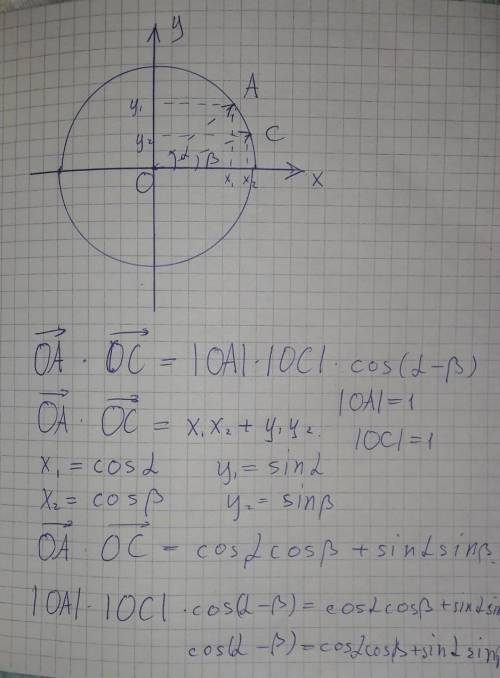 y
y₁ A
y₂ C
α β
O x₁ x₂ x
OA · OC = |OA|·|OC| · cos(α-β)
|OA|=1
OA · OC = x₁x₂ + y₁y₂.
|OC|=1
x₁ = cosα y₁ = sinα
x₂ = cosβ y₂ = sinβ
OA · OC = cosα cosβ + sinα sinβ
|OA|·|OC| · cos(α-β) = cosα cosβ + sinα sin
cos(α-β) = cosα cosβ + sinα sin